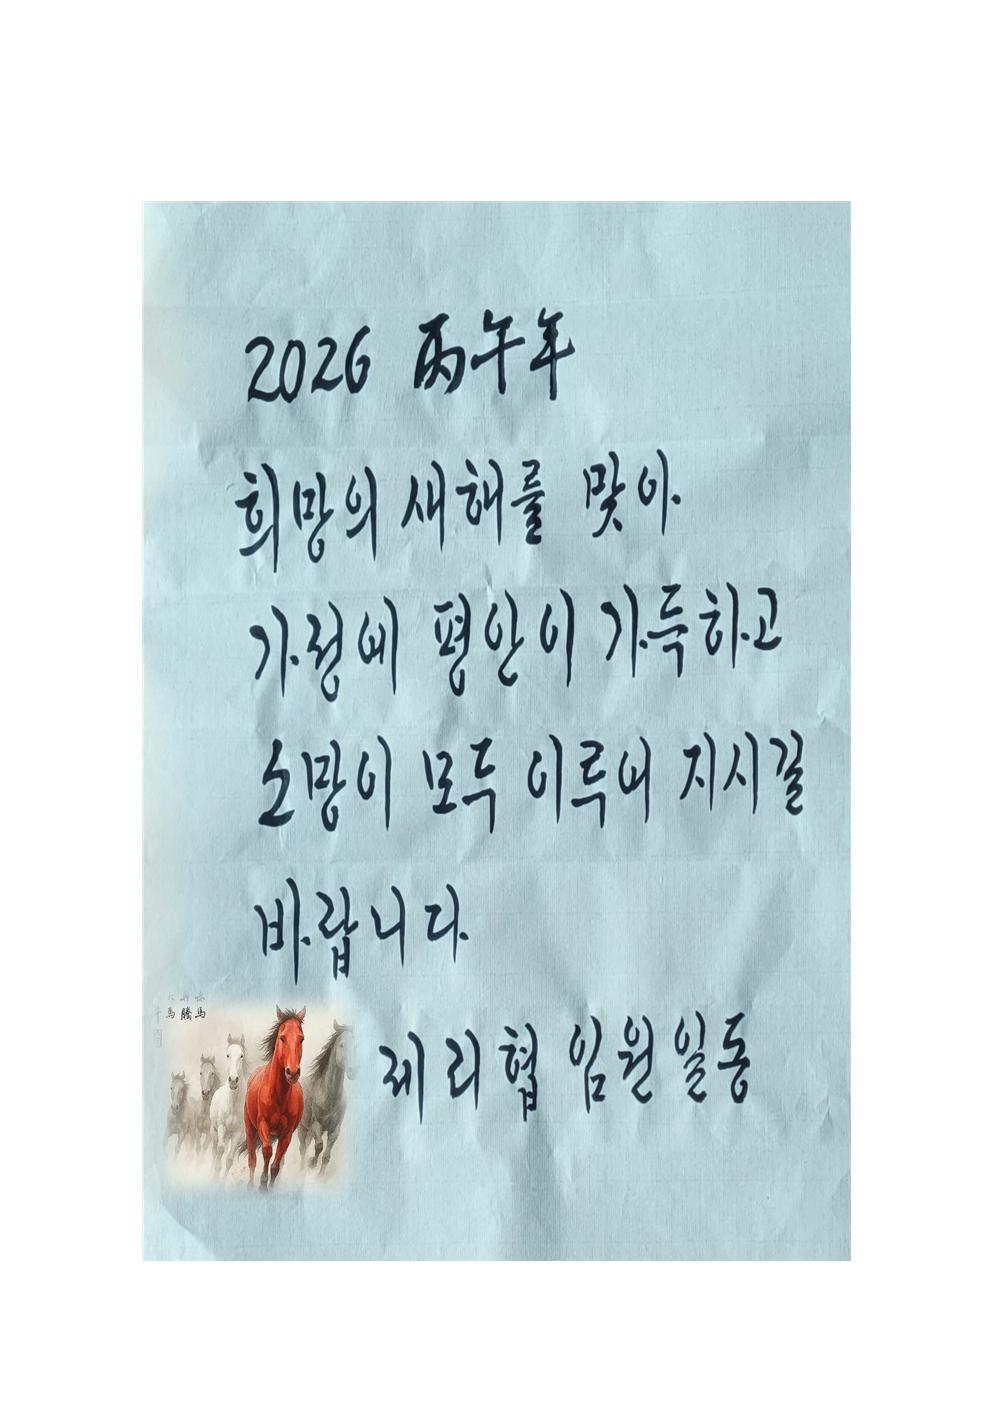 2026 丙午年
희망의 새해를 맞아
가정에 평안이 가득하고
소망이 모두 이루어 지시길
바랍니다
馬騰馬
제리협 임원일동